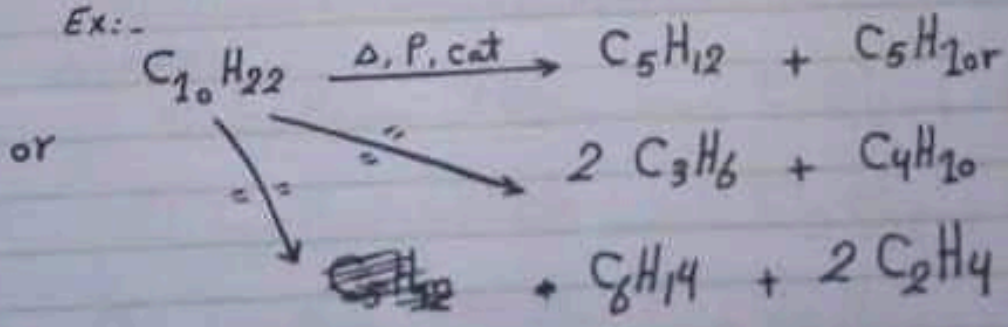 Ex:-
C₁₀H₂₂ Δ, P, cat → C₅H₁₂ + C₅H₁₀ or
or 〃 2 C₃H₆ + C₄H₁₀
〃 C₆H₁₄ + 2 C₂H₄